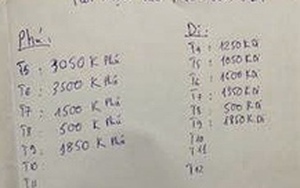 Phá:
T5 : 3050 K Phá
T6 : 3500 K Phá
T7 : 1500 K Phá
T8 : 500 K Phá
T9 : 1850 K Phá
T10 :
T11
Di:
T4 : 1250 K Di
T5 : 1050 K Di
T6 : 1500 K Di
T7 : 1350 K Di
T8 : 500 K Di
T9 : 1850 K Di
T10
T11
T12